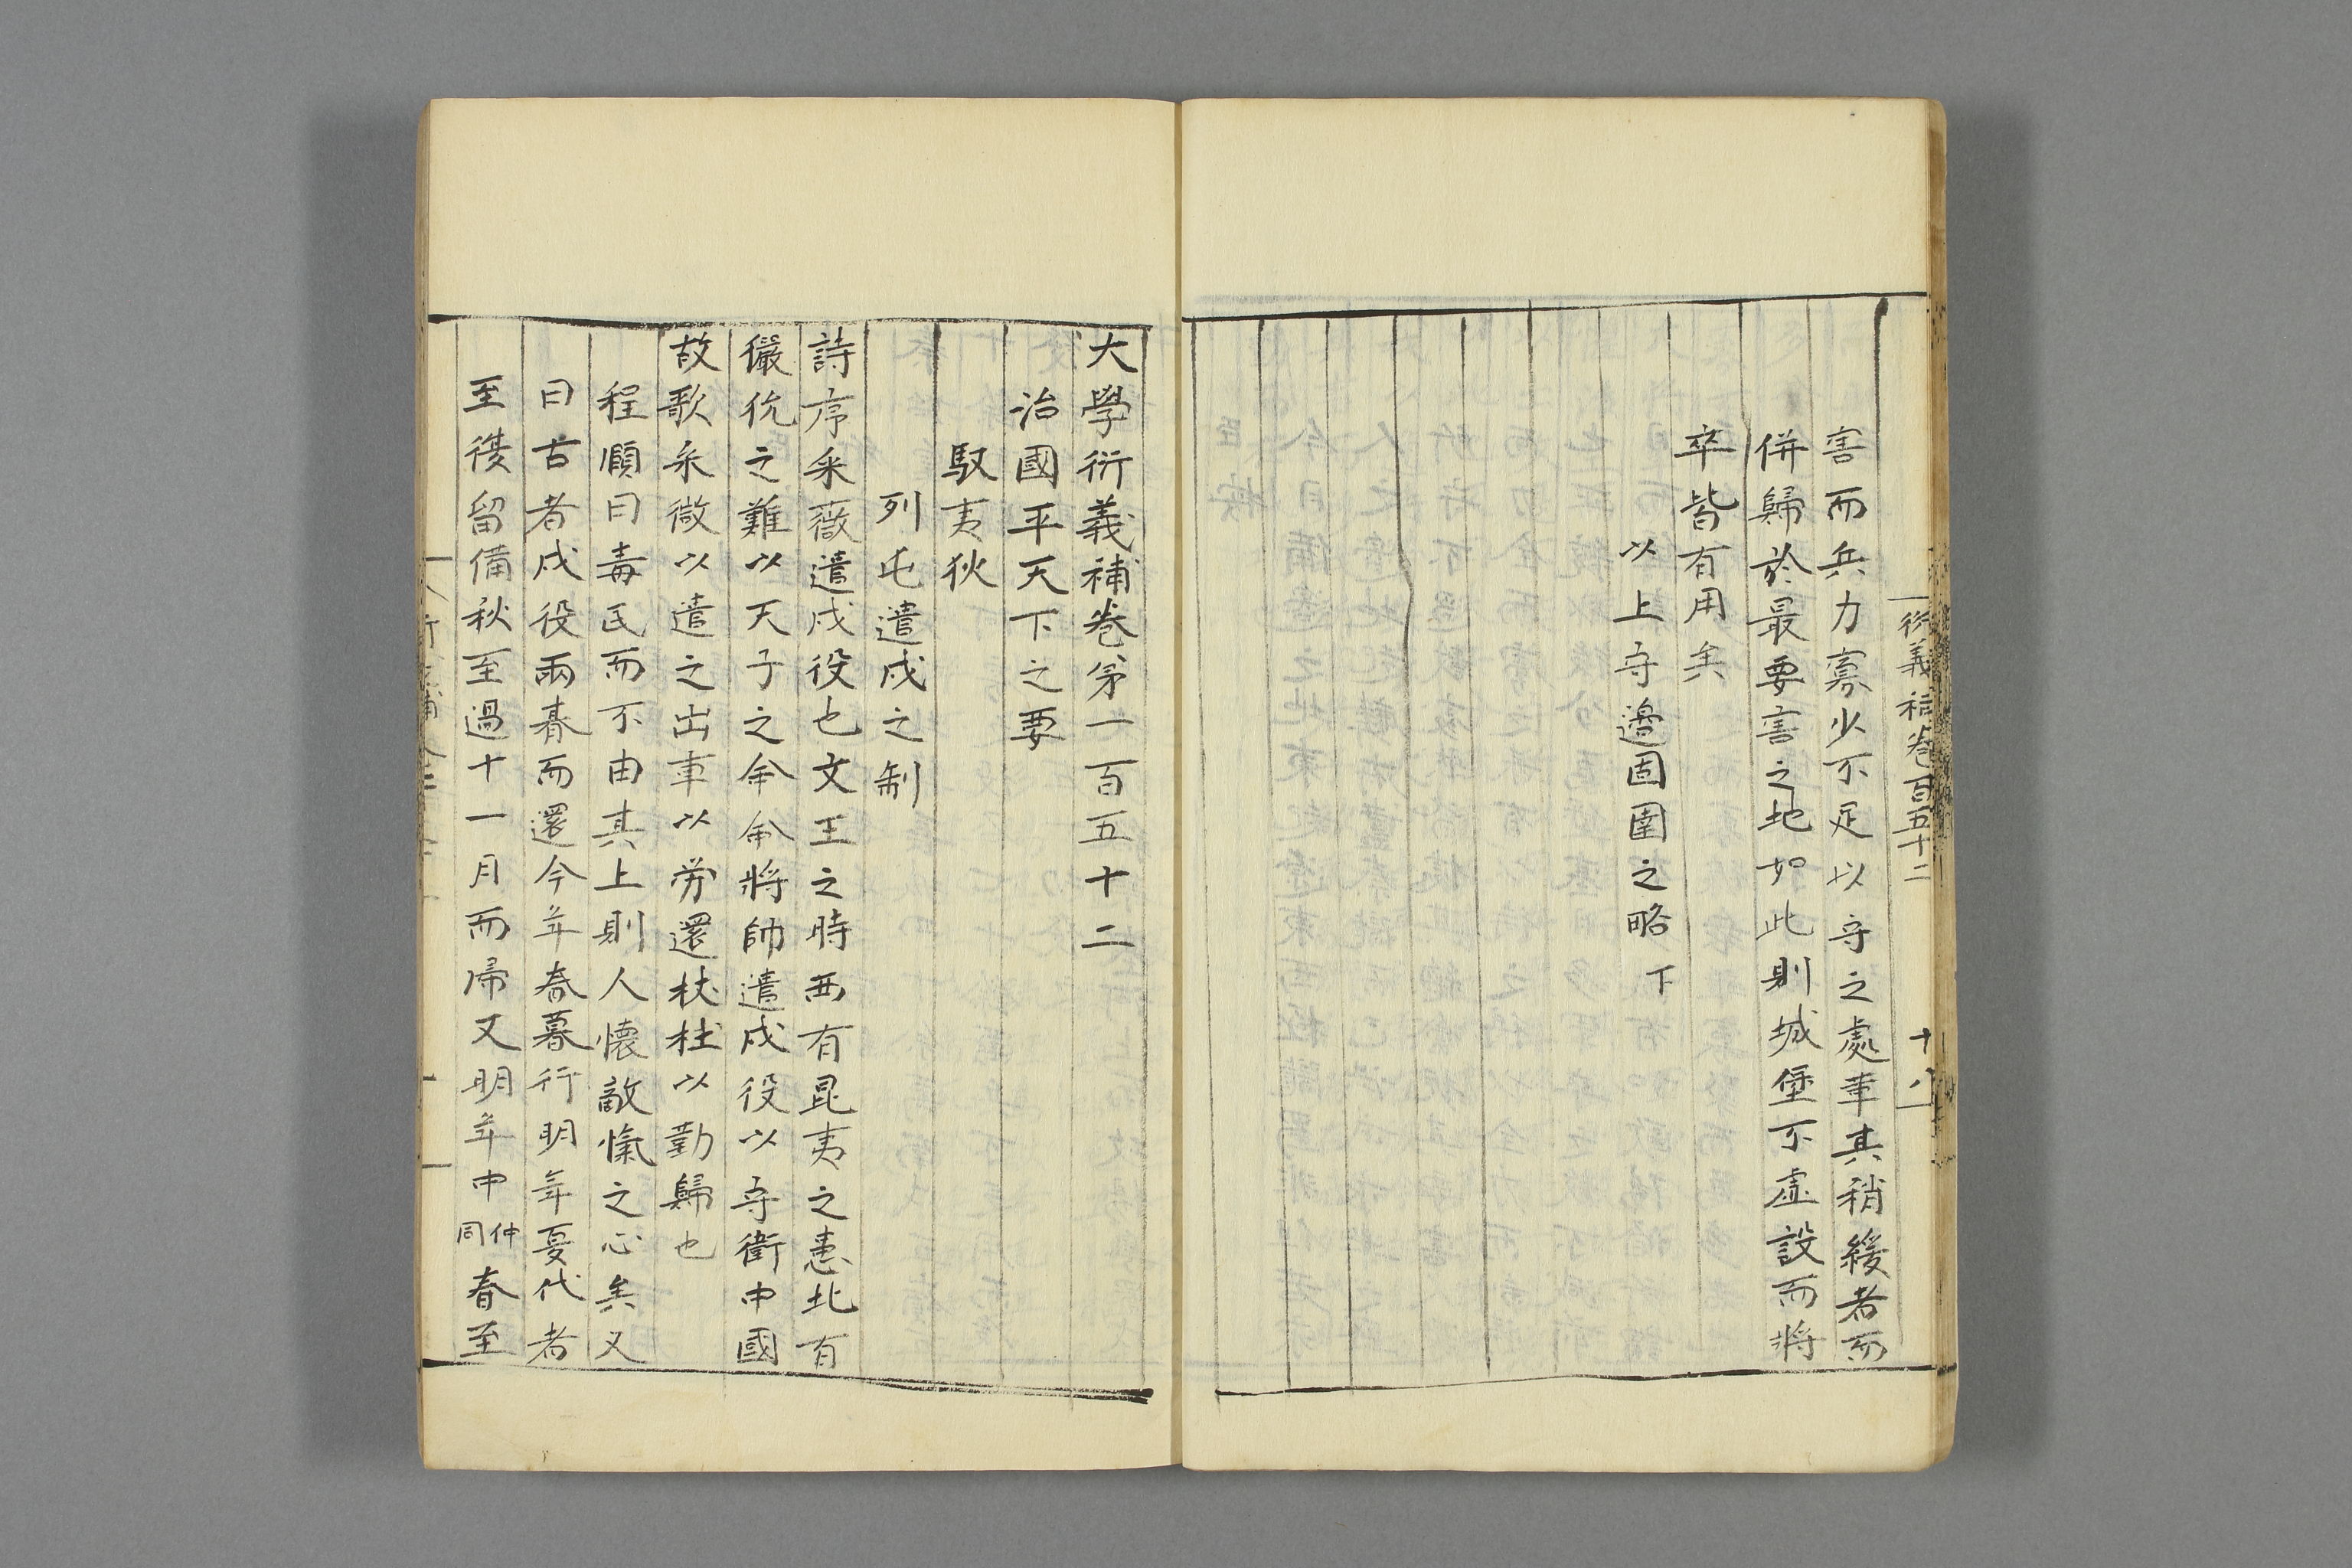 衍義補卷百五十二 十八
害而兵力寡少不足以守之處革其稍緩者而
併歸於最要害之地如此則城堡不虛設而將
卒皆有用矣
以上守邊固圉之略 下
大學衍義補卷第一百五十二
治國平天下之要
馭夷狄
列屯遣戍之制
詩序采薇遣戍役也文王之時西有昆夷之患北有
玁狁之難以天子之命命將帥遣戍役以守衛中國
故歌采微以遣之出車以勞還杕杜以勤歸也
程頤曰毒民而不由其上則人懷敵愾之心矣又
曰古者戍役兩朞而還今年春暮行明年夏代者
至復留備秋至過十一月而歸又明年中仲同春至